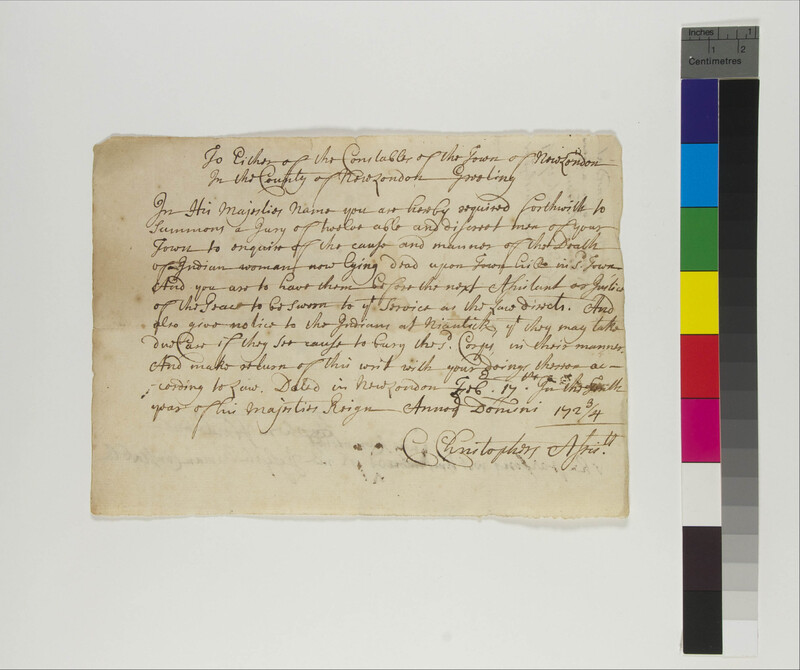 To Either of the Constables of the Town of New London
In the County of New London Greeting
In His Majesties Name you are hereby required forthwith to
Summons a Jury of twelve able and discreet men of your
Town to enquire of the cause and manner of the Death
of Indian woman now lying dead upon Town in s.d Town
And you are to have them before the next Assistant or Justice
of the Peace to be sworn to ye Service as the Law directs. And
also give notice to the Indians at Niantick yt they may take
due Care if they see cause to bury the sd. Corps in their manner.
And make return of this writ with your doings thereon ac-
-cording to Law. Dated in New London Feb. 17th In the
year of his Majesties Reign Annoq Domini 1723/4
C Christophers Assist.
Inches 1
1 2
Centimetres